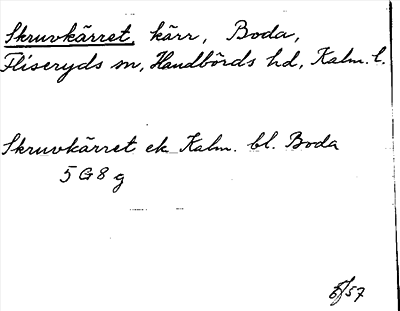 Skruvkärret, kärr, Boda,
Fliseryds sn, Handbörds hd, Kalm. l.
Skruvkärret ek Kalm. bl. Boda
5 G 8 g
/57